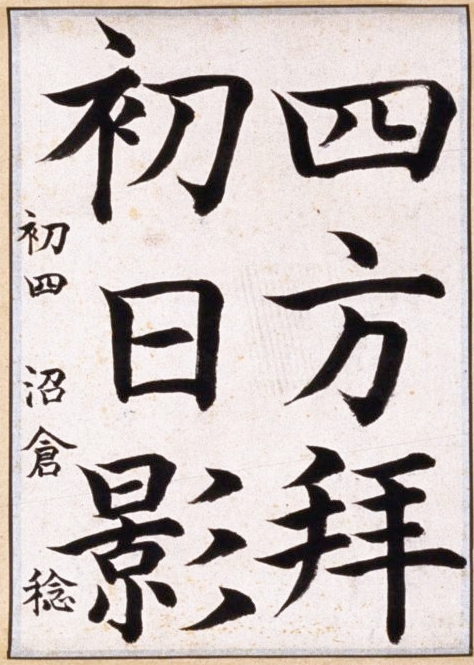 四方拝
初日影
初四 沼倉 稔